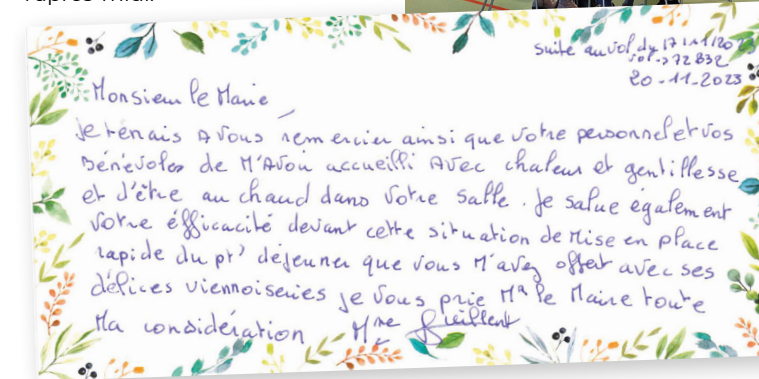 l'après-midi.
suite au vol du 17/11/2023
vol -> 72832
20-11-2023
Monsieur le Maire
Je tenais A vous remercier ainsi que votre personnel et vos
Bénévoles de M'Avoir accueilli Avec chaleur et gentillesse
et d'être au chaud dans votre salle. Je salue également
votre éfficacité devant cette situation de Mise en place
rapide du pt' déjeuner que vous M'avez offert avec ses
délices viennoiseries je vous prie Mr le Maire toute
Ma considération Mme